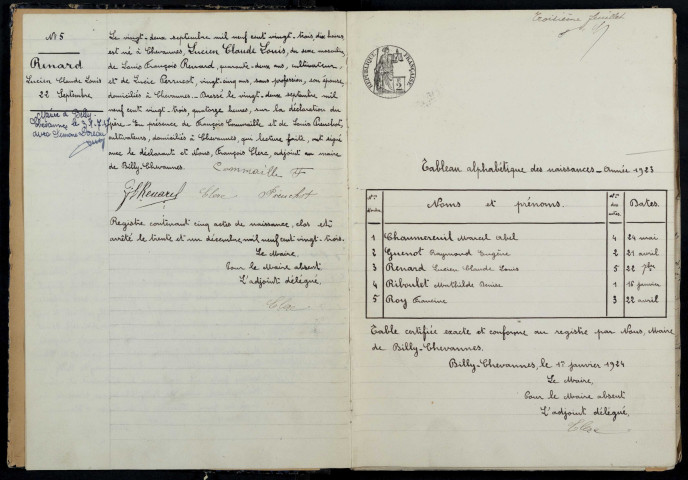 N° 5
Renard
Lucien Claude Louis
22 Septembre
Marié à Billy-
Chevannes le
avec Simone
Le vingt-deux septembre mil neuf cent vingt-trois, dix heures
est né à Chevannes, Lucien Claude Louis, du sexe masculin,
de Louis François Renard, quarante-deux ans, cultivateur,
et de Lucie Perruest, vingt-cinq ans, sans profession, son épouse,
domiciliés à Chevannes. - Dressé le vingt-deux septembre mil
neuf cent vingt-trois, quatorze heures, sur la déclaration du
père. - En présence de François Commaille et de Louis Pouchot,
cultivateurs, domiciliés à Chevannes, qui lecture faite, ont signé
avec le déclarant et Nous, François Clerc, adjoint au maire
de Billy-Chevannes.
Commaille F
Renard Clerc Pouchot
Registre contenant cinq actes de naissance, clos et
arrêté le trente et un décembre mil neuf cent vingt-trois.
Le Maire,
Pour le Maire absent
L'adjoint délégué,
Clerc
Troisième feuillet
RÉPUBLIQUE FRANÇAISE
2
Tableau alphabétique des naissances - Année 1923
N° d'ordre Noms et prénoms. N° des actes Dates.
1 Chaumereuil Marcel Abel 4 24 mai
2 Guenot Raymond Eugène 2 21 avril
3 Renard Lucien Claude Louis 5 22 7bre
4 Riboulet Mathilde Denise 1 16 janvier
5 Roy Francine 3 22 avril
Table certifiée exacte et conforme au registre par Nous, Maire
de Billy-Chevannes.
Billy-Chevannes, le 1er janvier 1924
Le Maire,
Pour le Maire absent
L'adjoint délégué,
Clerc